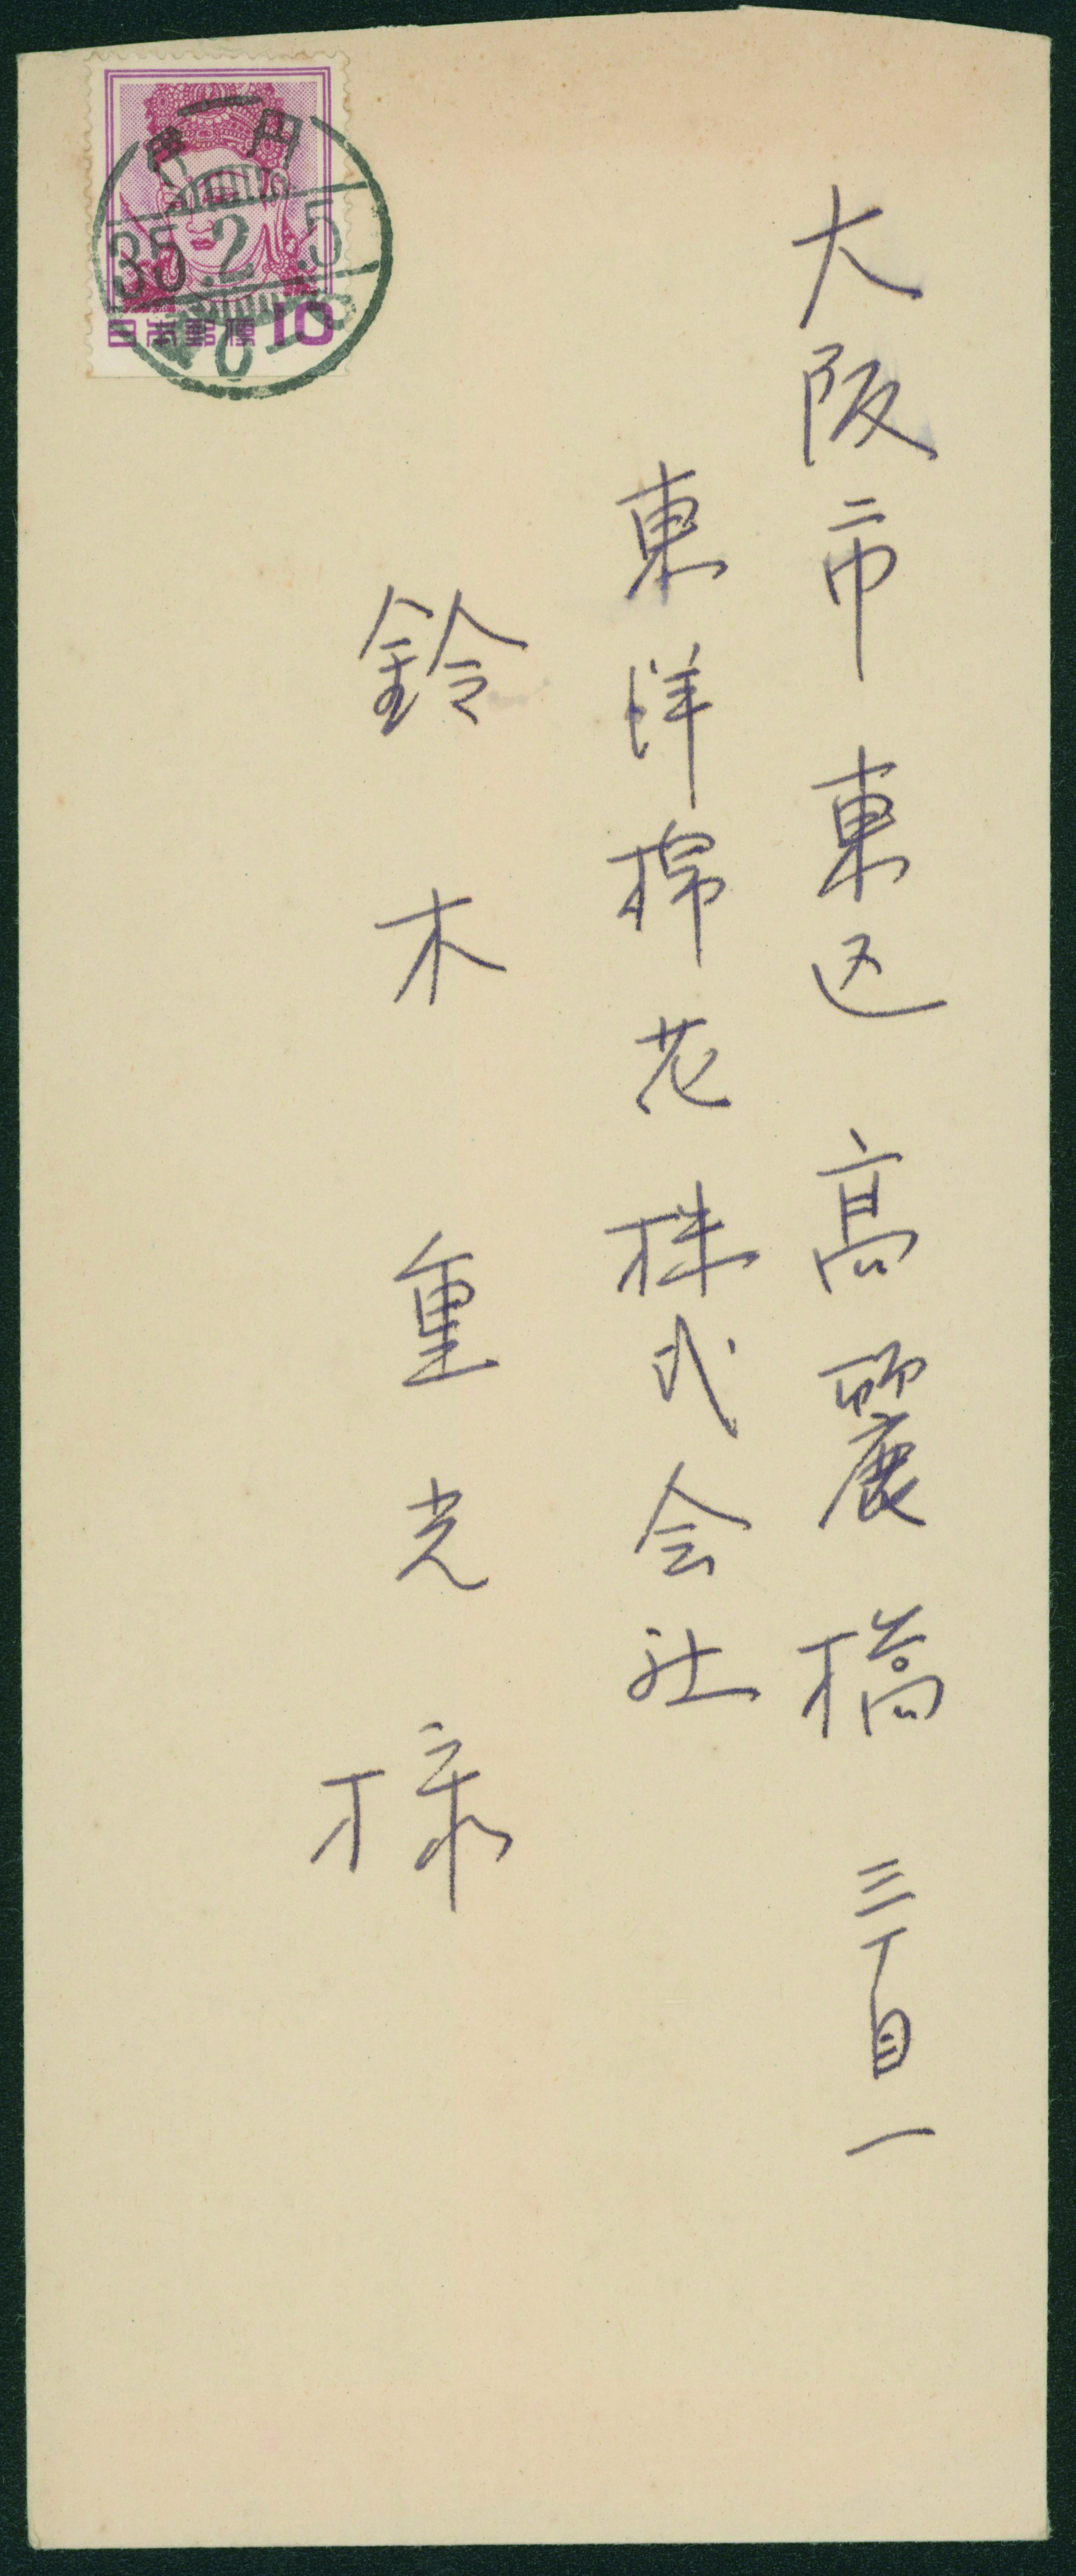 大阪市東区高麗橋三丁目一
東洋棉花株式会社
鈴木重光様
円
35.2.5
日本郵便 10